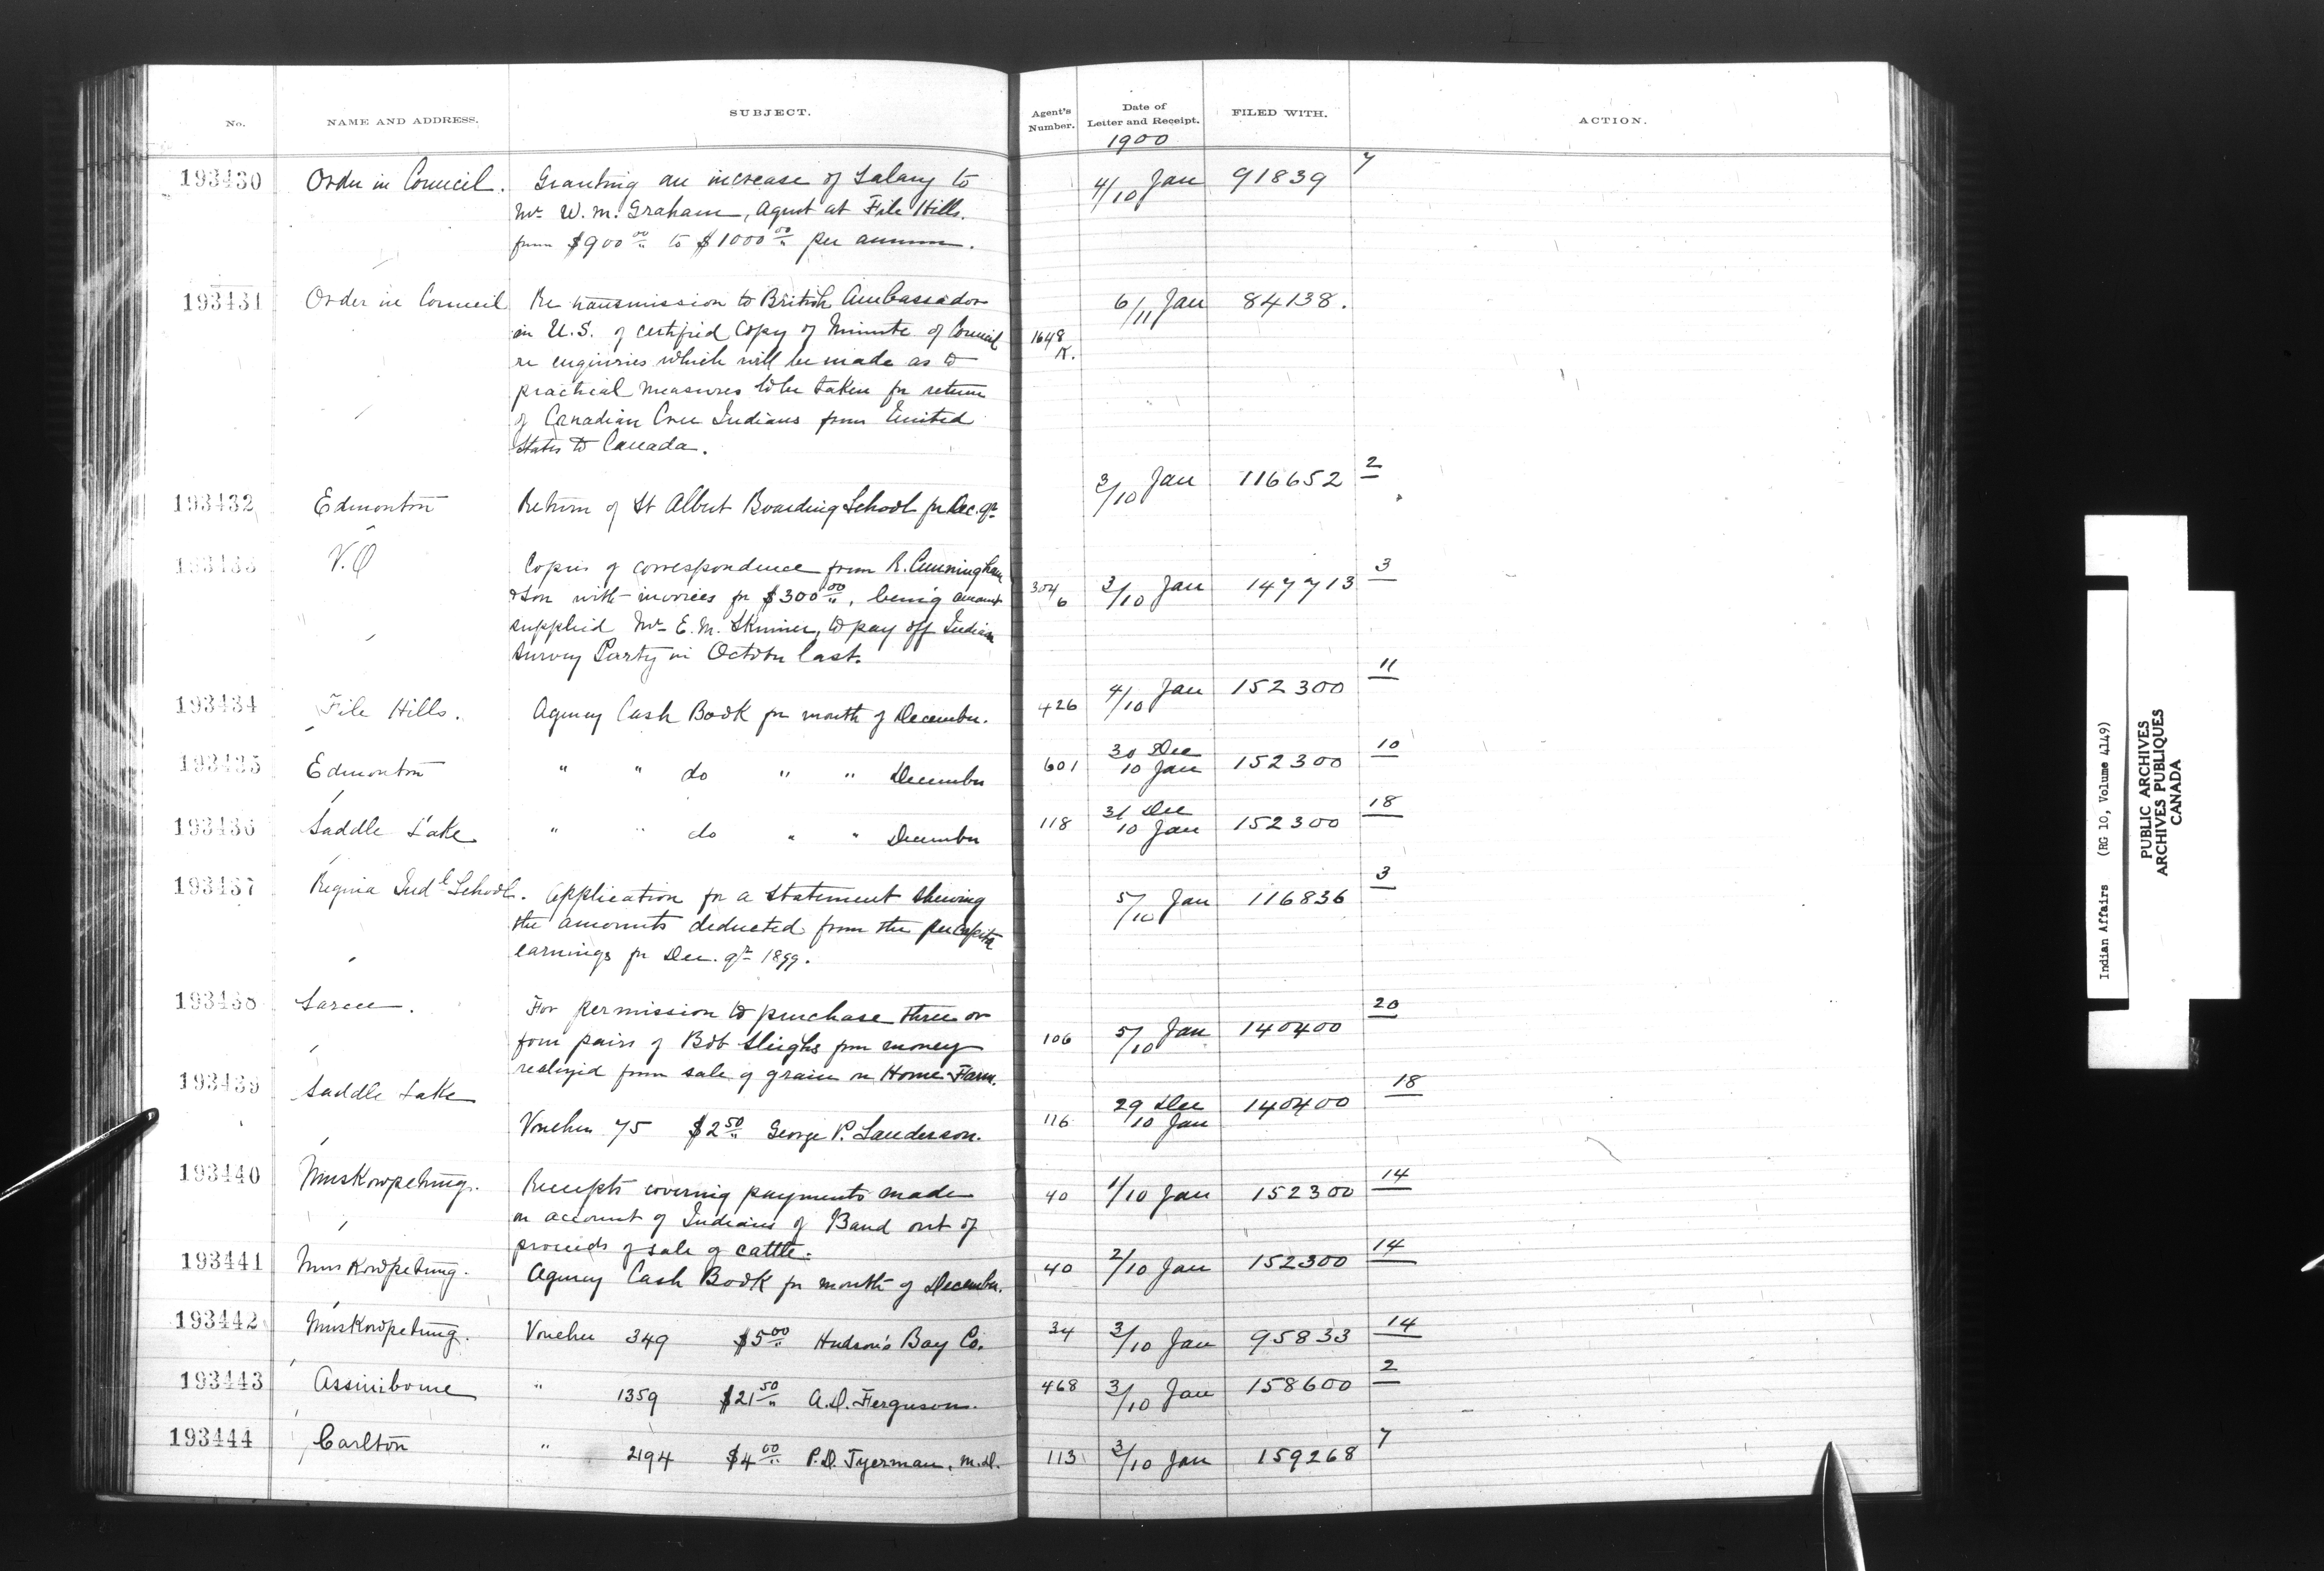 No. NAME AND ADDRESS. SUBJECT. Agent's Number. Date of Letter and Receipt. FILED WITH. ACTION.
1900
193430 Order in Council. Granting an increase of Salary to 4/10 Jan 91839 7
Mr. W. M. Graham, Agent at File Hills.
from $900 00 to $1000 00 per annum.
193431 Order in Council Re transmission to British Ambassador 6/11 Jan 84138.
in U.S. of certified Copy of Minute of Council 1648 K.
re enquiries which will be made as to
practical measures to be taken for return
of Canadian Cree Indians from United
States to Canada.
193432 Edmonton Return of St Albert Boarding School for Dec. qr. 3/10 Jan 116652 2
193433 V.O Copies of correspondence from R. Cunningham
& Son with invoices for $300 00, being amount 304/6 3/10 Jan 147713 3
supplied Mr. E. M. Skinner, to pay off Indian
Survey Party in October last.
193434 File Hills. Agency Cash Book for month of December. 426 4/10 Jan 152300 11
193435 Edmonton " " do " " December 601 30 Dec 10 Jan 152300 10
193436 Saddle Lake " " do " " December 118 31 Dec 10 Jan 152300 18
193437 Regina Indl School. Application for a Statement shewing 5/10 Jan 116836 3
the amounts deducted from the per capita
earnings for Dec. qr 1899.
193438 Sarcee. For permission to purchase three or
four pairs of Bob Sleighs from money 106 5/10 Jan 140400 20
realized from sale of grain on Home Farm.
193439 Saddle Lake
Voucher 75 $2 50 George P. Sanderson. 116 29 Dec 10 Jan 140400 18
193440 Muskowpetung. Receipts covering payments made 40 1/10 Jan 152300 14
on account of Indians of Band out of
proceeds of sale of cattle.
193441 Muskowpetung. Agency Cash Book for month of December. 40 2/10 Jan 152300 14
193442 Muskowpetung. Voucher 349 $5 00 Hudson's Bay Co. 34 3/10 Jan 95833 14
193443 Assiniboine " 1359 $21 50 A. D. Ferguson. 468 3/10 Jan 158600 2
193444 Carlton " 2194 $4 00 P. D. Tyerman, M.D. 113 3/10 Jan 159268 7
Indian Affairs (RG 10, Volume 4149)
PUBLIC ARCHIVES
ARCHIVES PUBLIQUES
CANADA